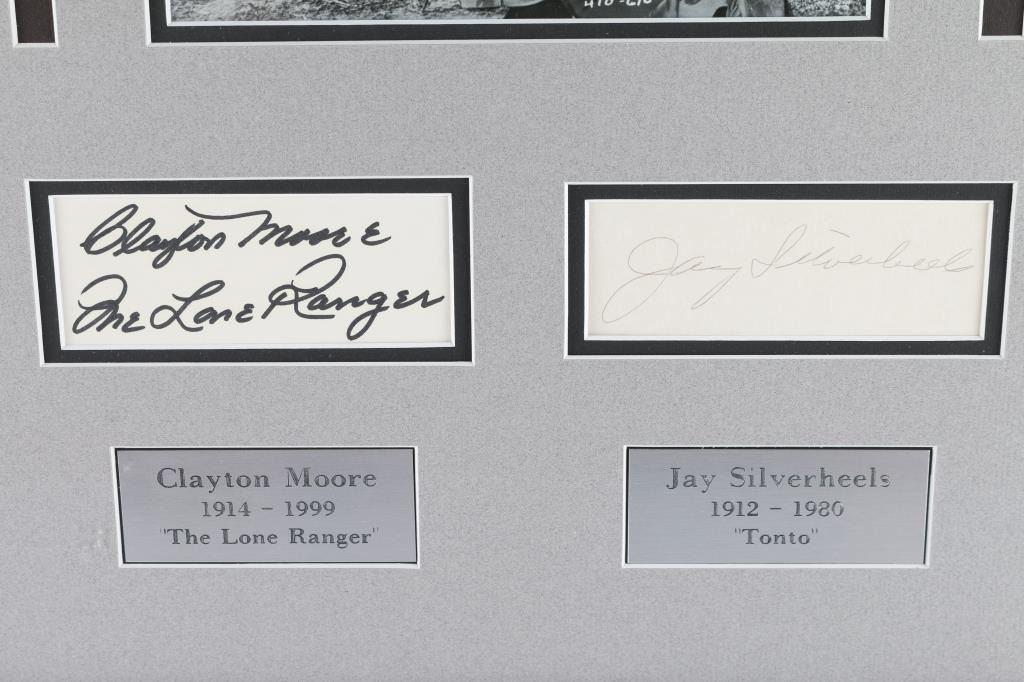 Clayton Moore
The Lone Ranger
Jay Silverheels
Clayton Moore
1914 - 1999
"The Lone Ranger"
Jay Silverheels
1912 - 1980
"Tonto"